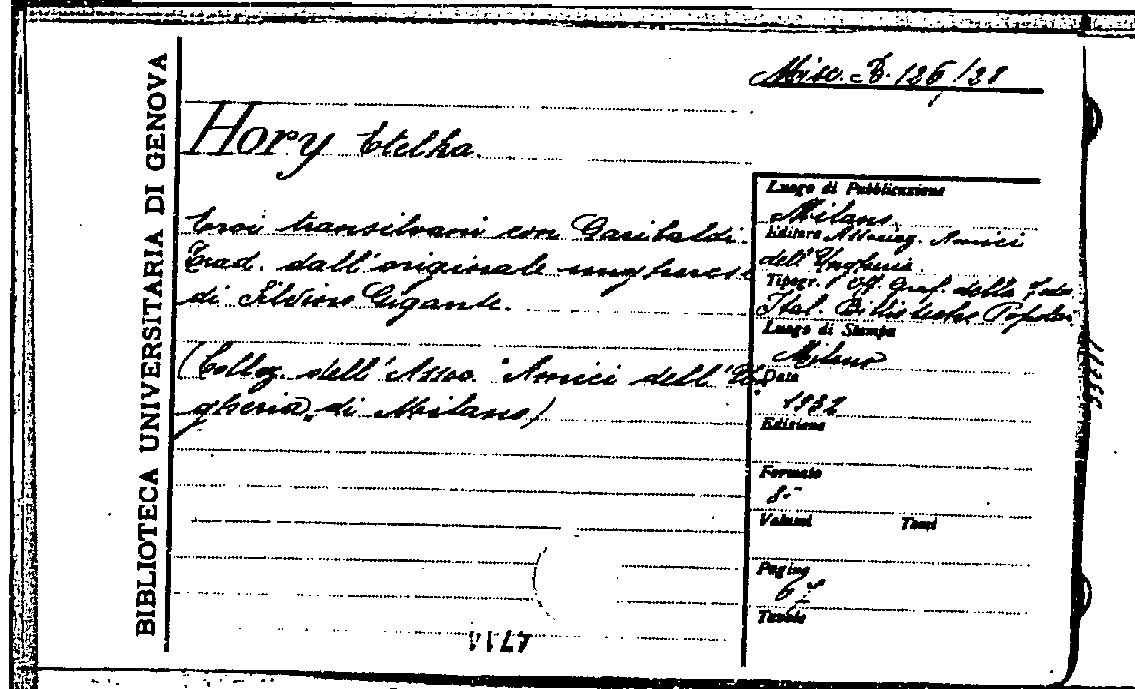 BIBLIOTECA UNIVERSITARIA DI GENOVA
Misc. B. 126/38
Hory Etelka.
Eroi transilvani con Garibaldi.
Trad. dall'originale ungherese
di Silvino Gigante.
(Collez. dell'Assoc. "Amici dell'Un-
gheria" di Milano)
Luogo di Pubblicazione
Milano
Editore Associaz. Amici
dell'Ungheria
Tipogr. Off. Graf. della Feder.
Ital. Biblioteche Popolari
Luogo di Stampa
Milano
Data
1932
Edizione
Formato
8°
Volumi Tomi
Pagine
Tavole